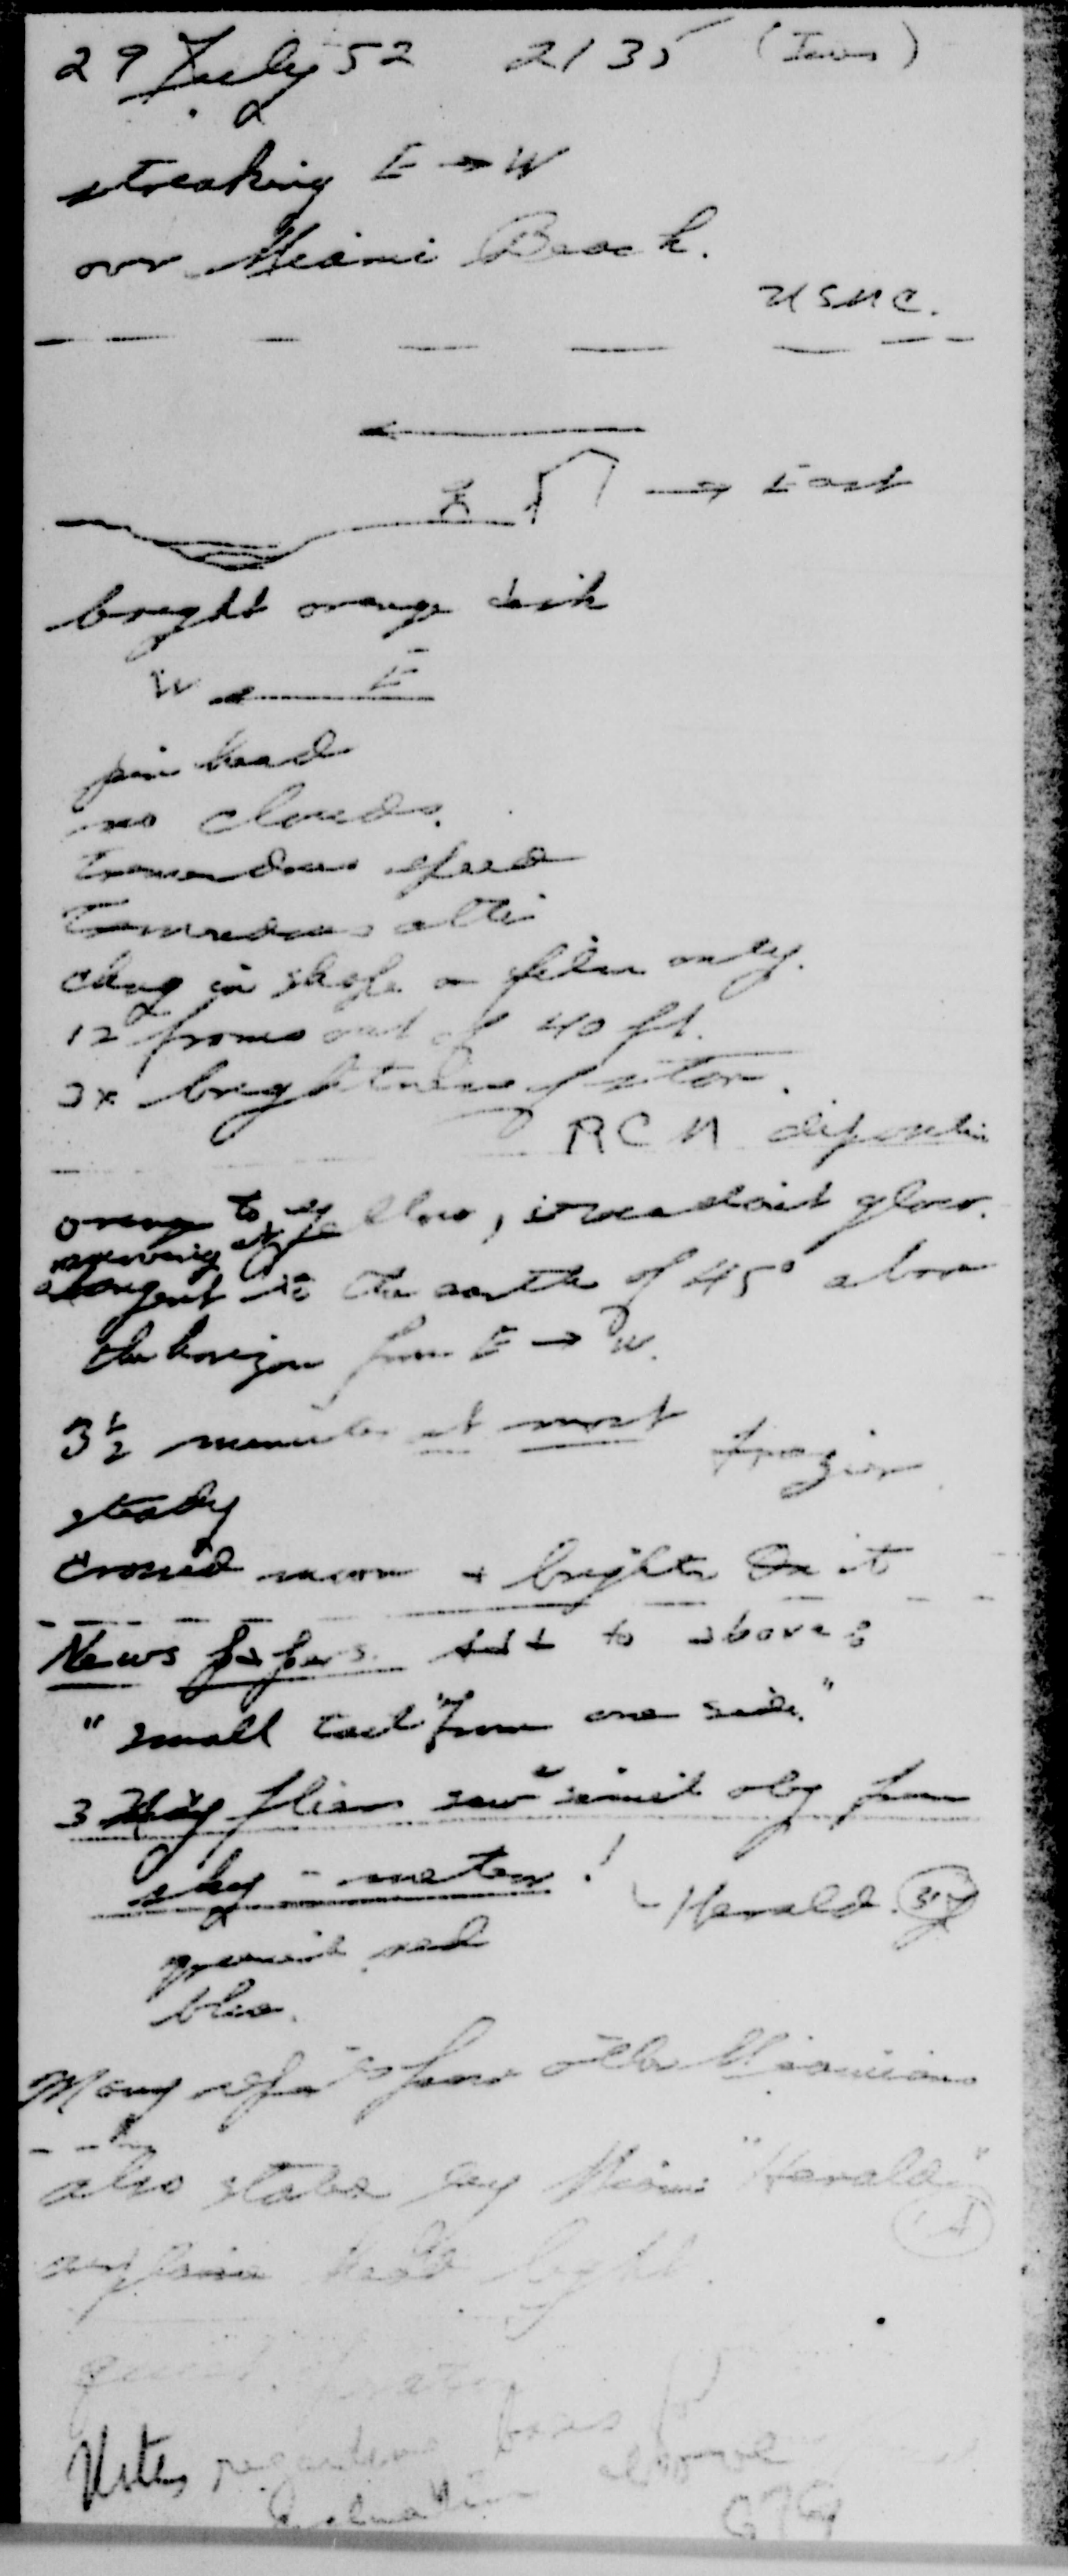 29 July 52 2135 (Tues)
streaking E → W
over Miami Beach.
USMC.
→ East
bright orange disk
W ← E
pin head
no clouds.
Tremendous speed
Tremendous alti
chng in shape on film only.
12 frames out of 40 ft.
3x brightness of star.
RCM
orange to yellow, glow.
moving at
tangent to the earth of 45° above
the horizon from E → W.
3½ minutes at most
steady
crossed moon + brighter than it
News papers. Add to above:
"small tail" from one side."
3 Navy fliers saw simil obj from
sky - meteor!
- Herald.
red
blue.
Many from other Miamians
also states Miami "Herald"
light.
Notes regarding basis for
Evaluation above